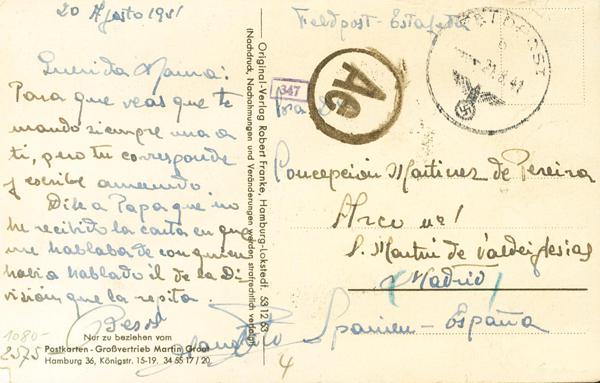 20 Agosto 1941
Querida Mama:
Para que veas que te
mando siempre una a
ti, pero tu corresponde
y escribe a menudo.
Dile a Papa que no
he recibido la carta en que
me hablaba de con quien
habia hablado il de la Di-
visión que la repita.
Besos
1080-
2575
Nur zu beziehen vom
Postkarten - Großvertrieb Martin Groot
Hamburg 36, Königstr. 15-19. 34 55 17 / 20
Original-Verlag Robert Franke, Hamburg-Lokstedt. 53 12 63
(Nachdruck, Nachahmungen und Veränderungen werden strafrechtlich verfolgt)
Feldpost - Estafeta
FELDPOST
b
21.8.41
347
Ae
Concepción Martinez de Pereira
Arco nº 1
S. Martin de Valdeiglesias
(Madrid)
Spanien - España
4